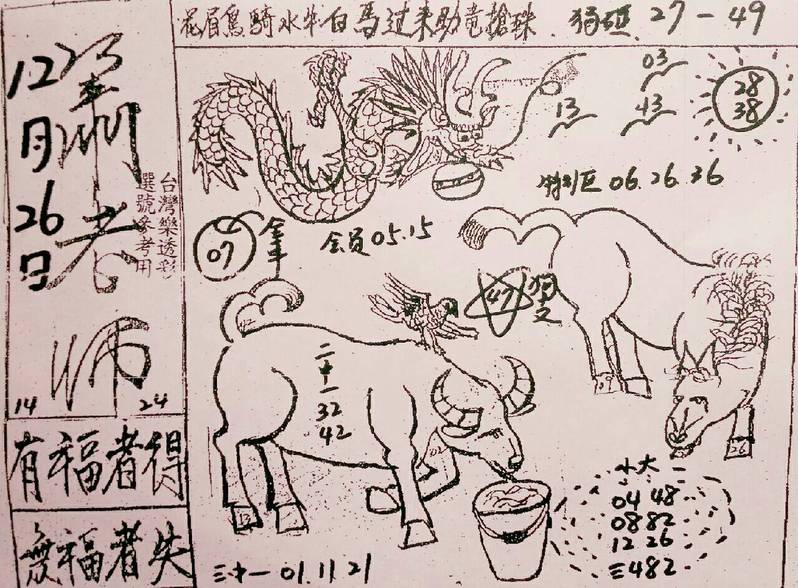 花眉鳥騎水牛白馬过来助竜搶珠 27-49
12月26日
蕭老師
台灣樂透彩
選號參考用
14
24
有福者得
無福者失
03
13
43
28
38
特别区 06.26.36
07
会员 05.15
47
二十二
32
42
小大
04 48
08 82
12 26
三482
三十一 01.11.21